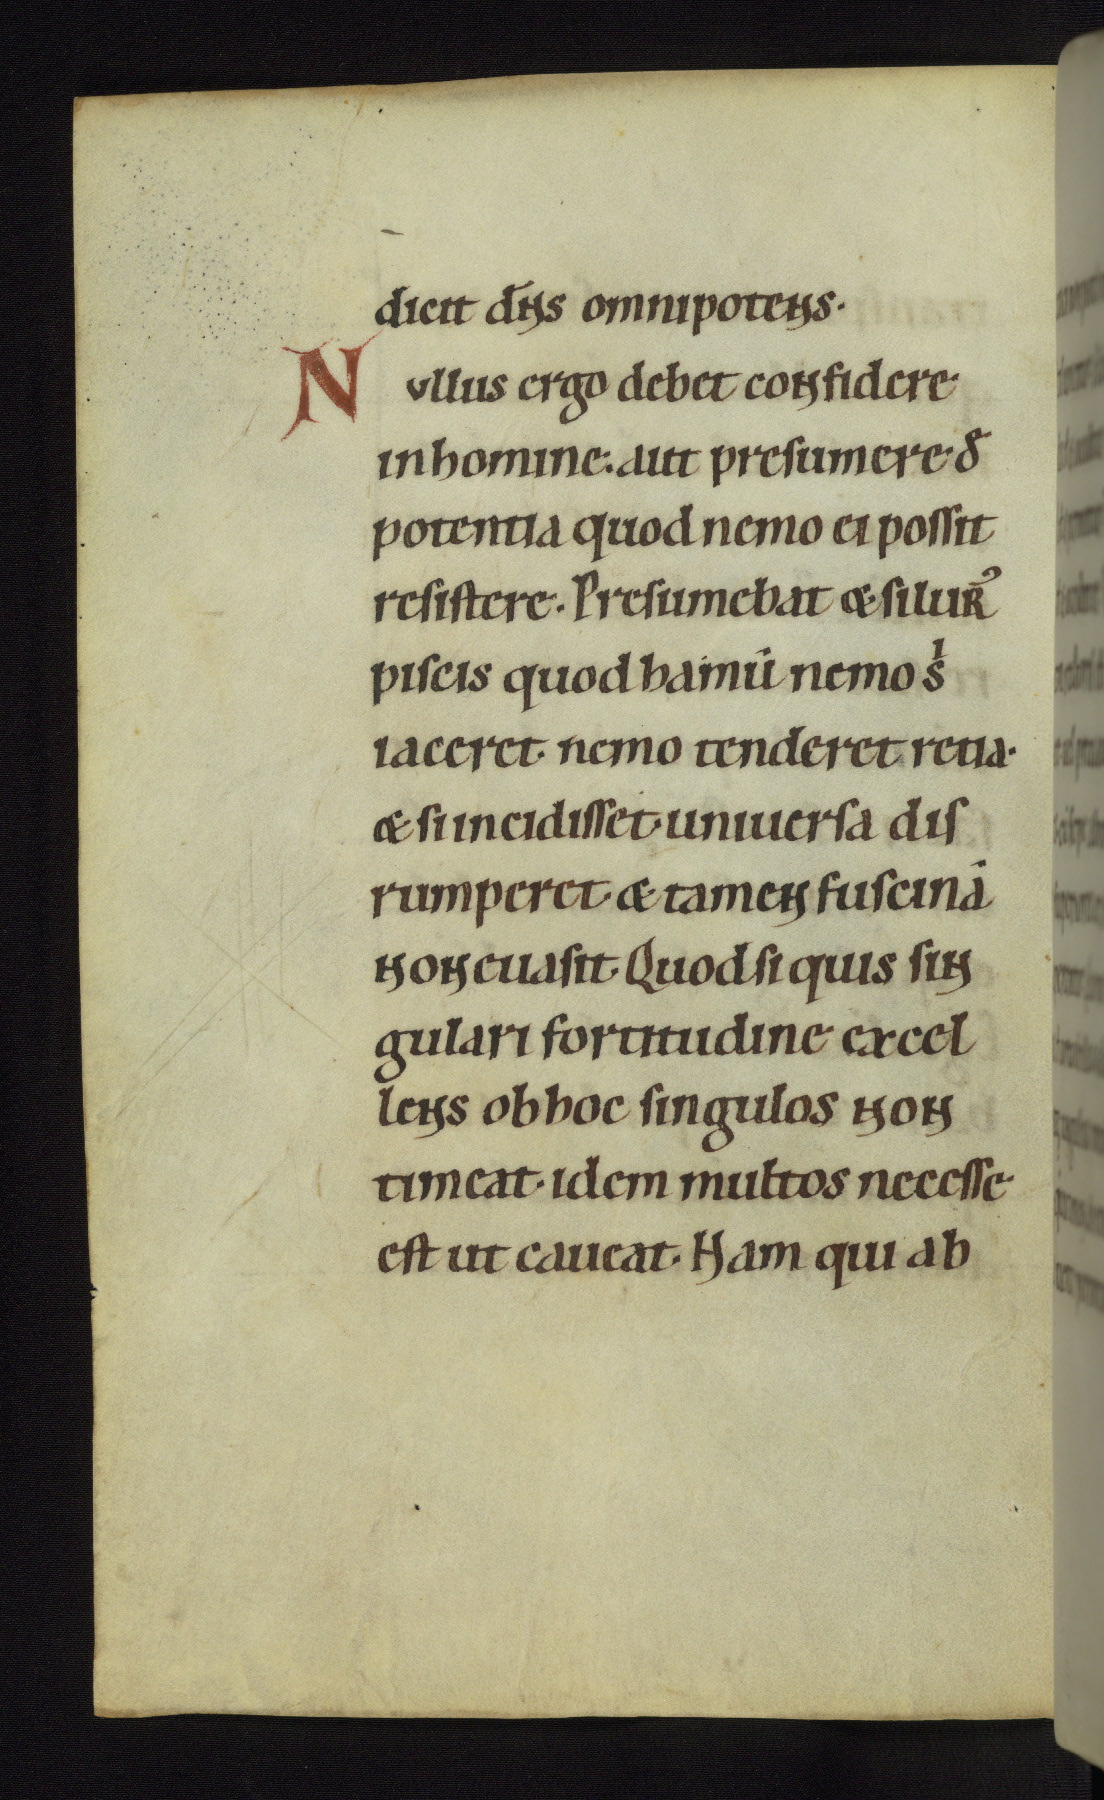 dicit dn̄s omnipotens.
Nullus ergo debet confidere
in homine. aut presumere. δ
potentia quod nemo ei possit
resistere. Presumebat & silurꝰ
piscis quod hamū nemo sⁱ
iaceret. nemo tenderet retia.
& si incidisset. uniuersa dis
rumperet. & tamen fuscinā
non euasit. Quod si quis sin
gulari fortitudine excel
lens ob hoc singulos non
timeat. idem multos necesse
est ut caueat. Nam qui ab